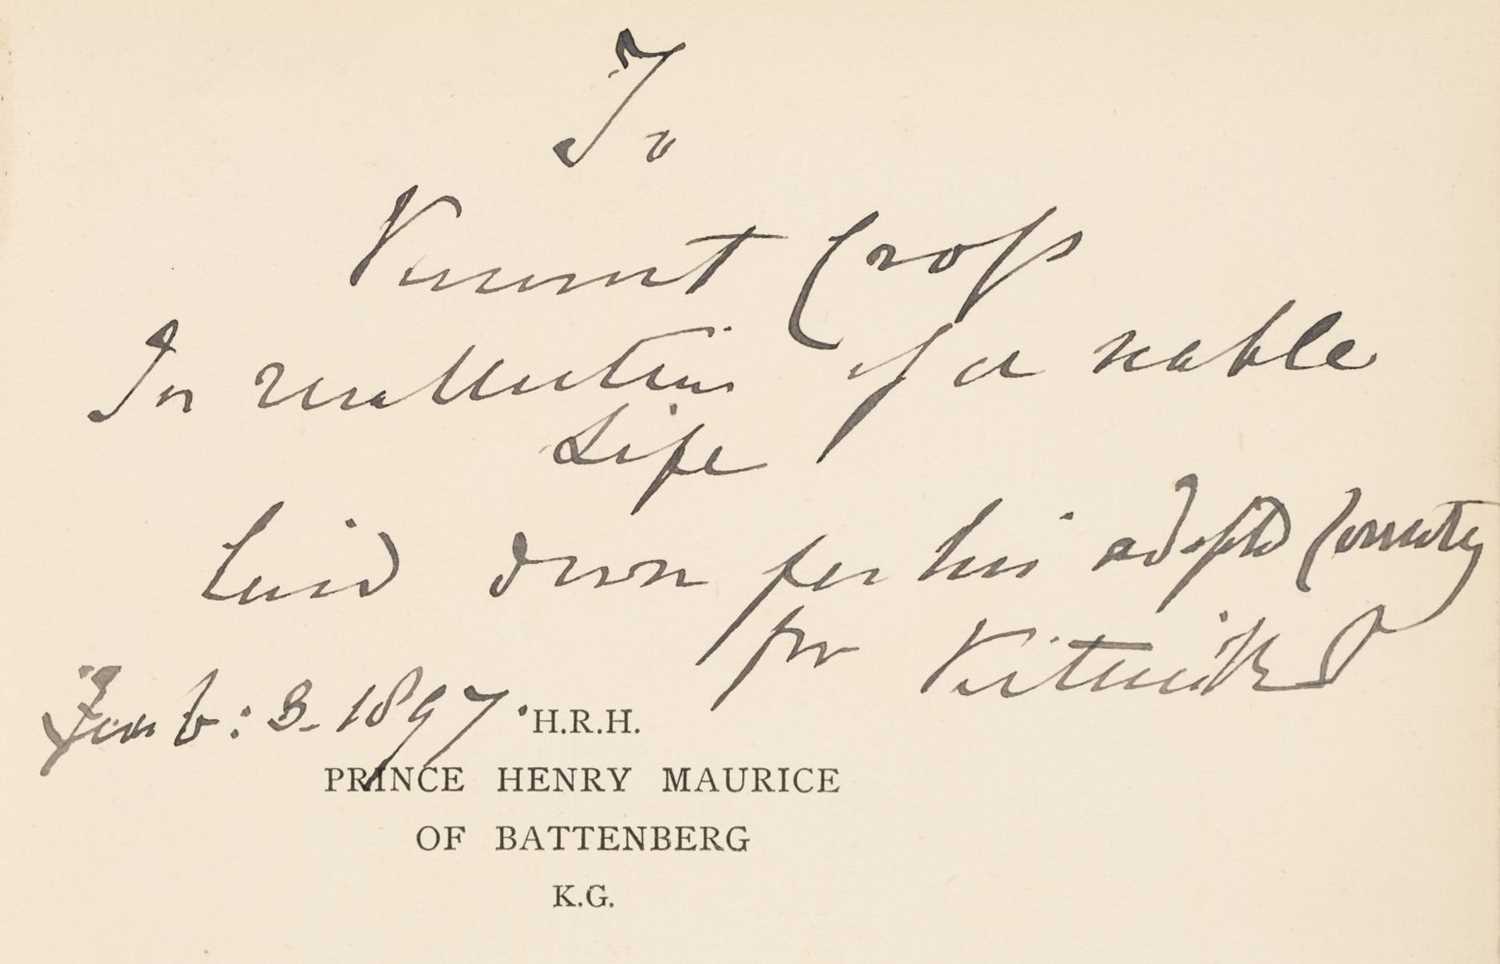 To
Viscount Cross
In recollection of a noble
Life
laid down for his adopted Country
from Victoria R I
Feb: 3. 1897.
H.R.H.
PRINCE HENRY MAURICE
OF BATTENBERG
K.G.